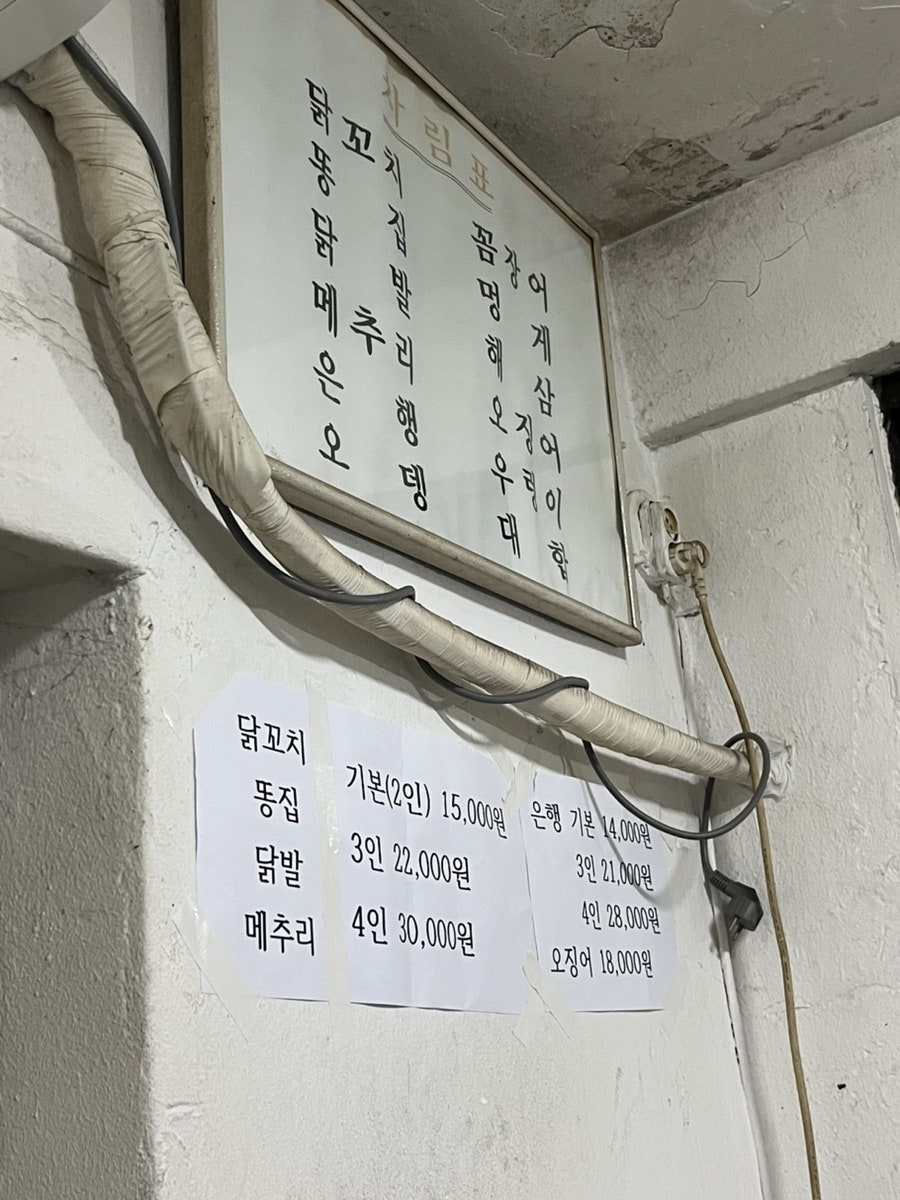 차림표
닭꼬치
똥집
닭발
메추리
은행
오뎅
꼼장어
멍게
해삼
오징어
우렁이
대합
닭꼬치
똥집
닭발
메추리
기본(2인) 15,000원
3인 22,000원
4인 30,000원
은행 기본 14,000원
3인 21,000원
4인 28,000원
오징어 18,000원